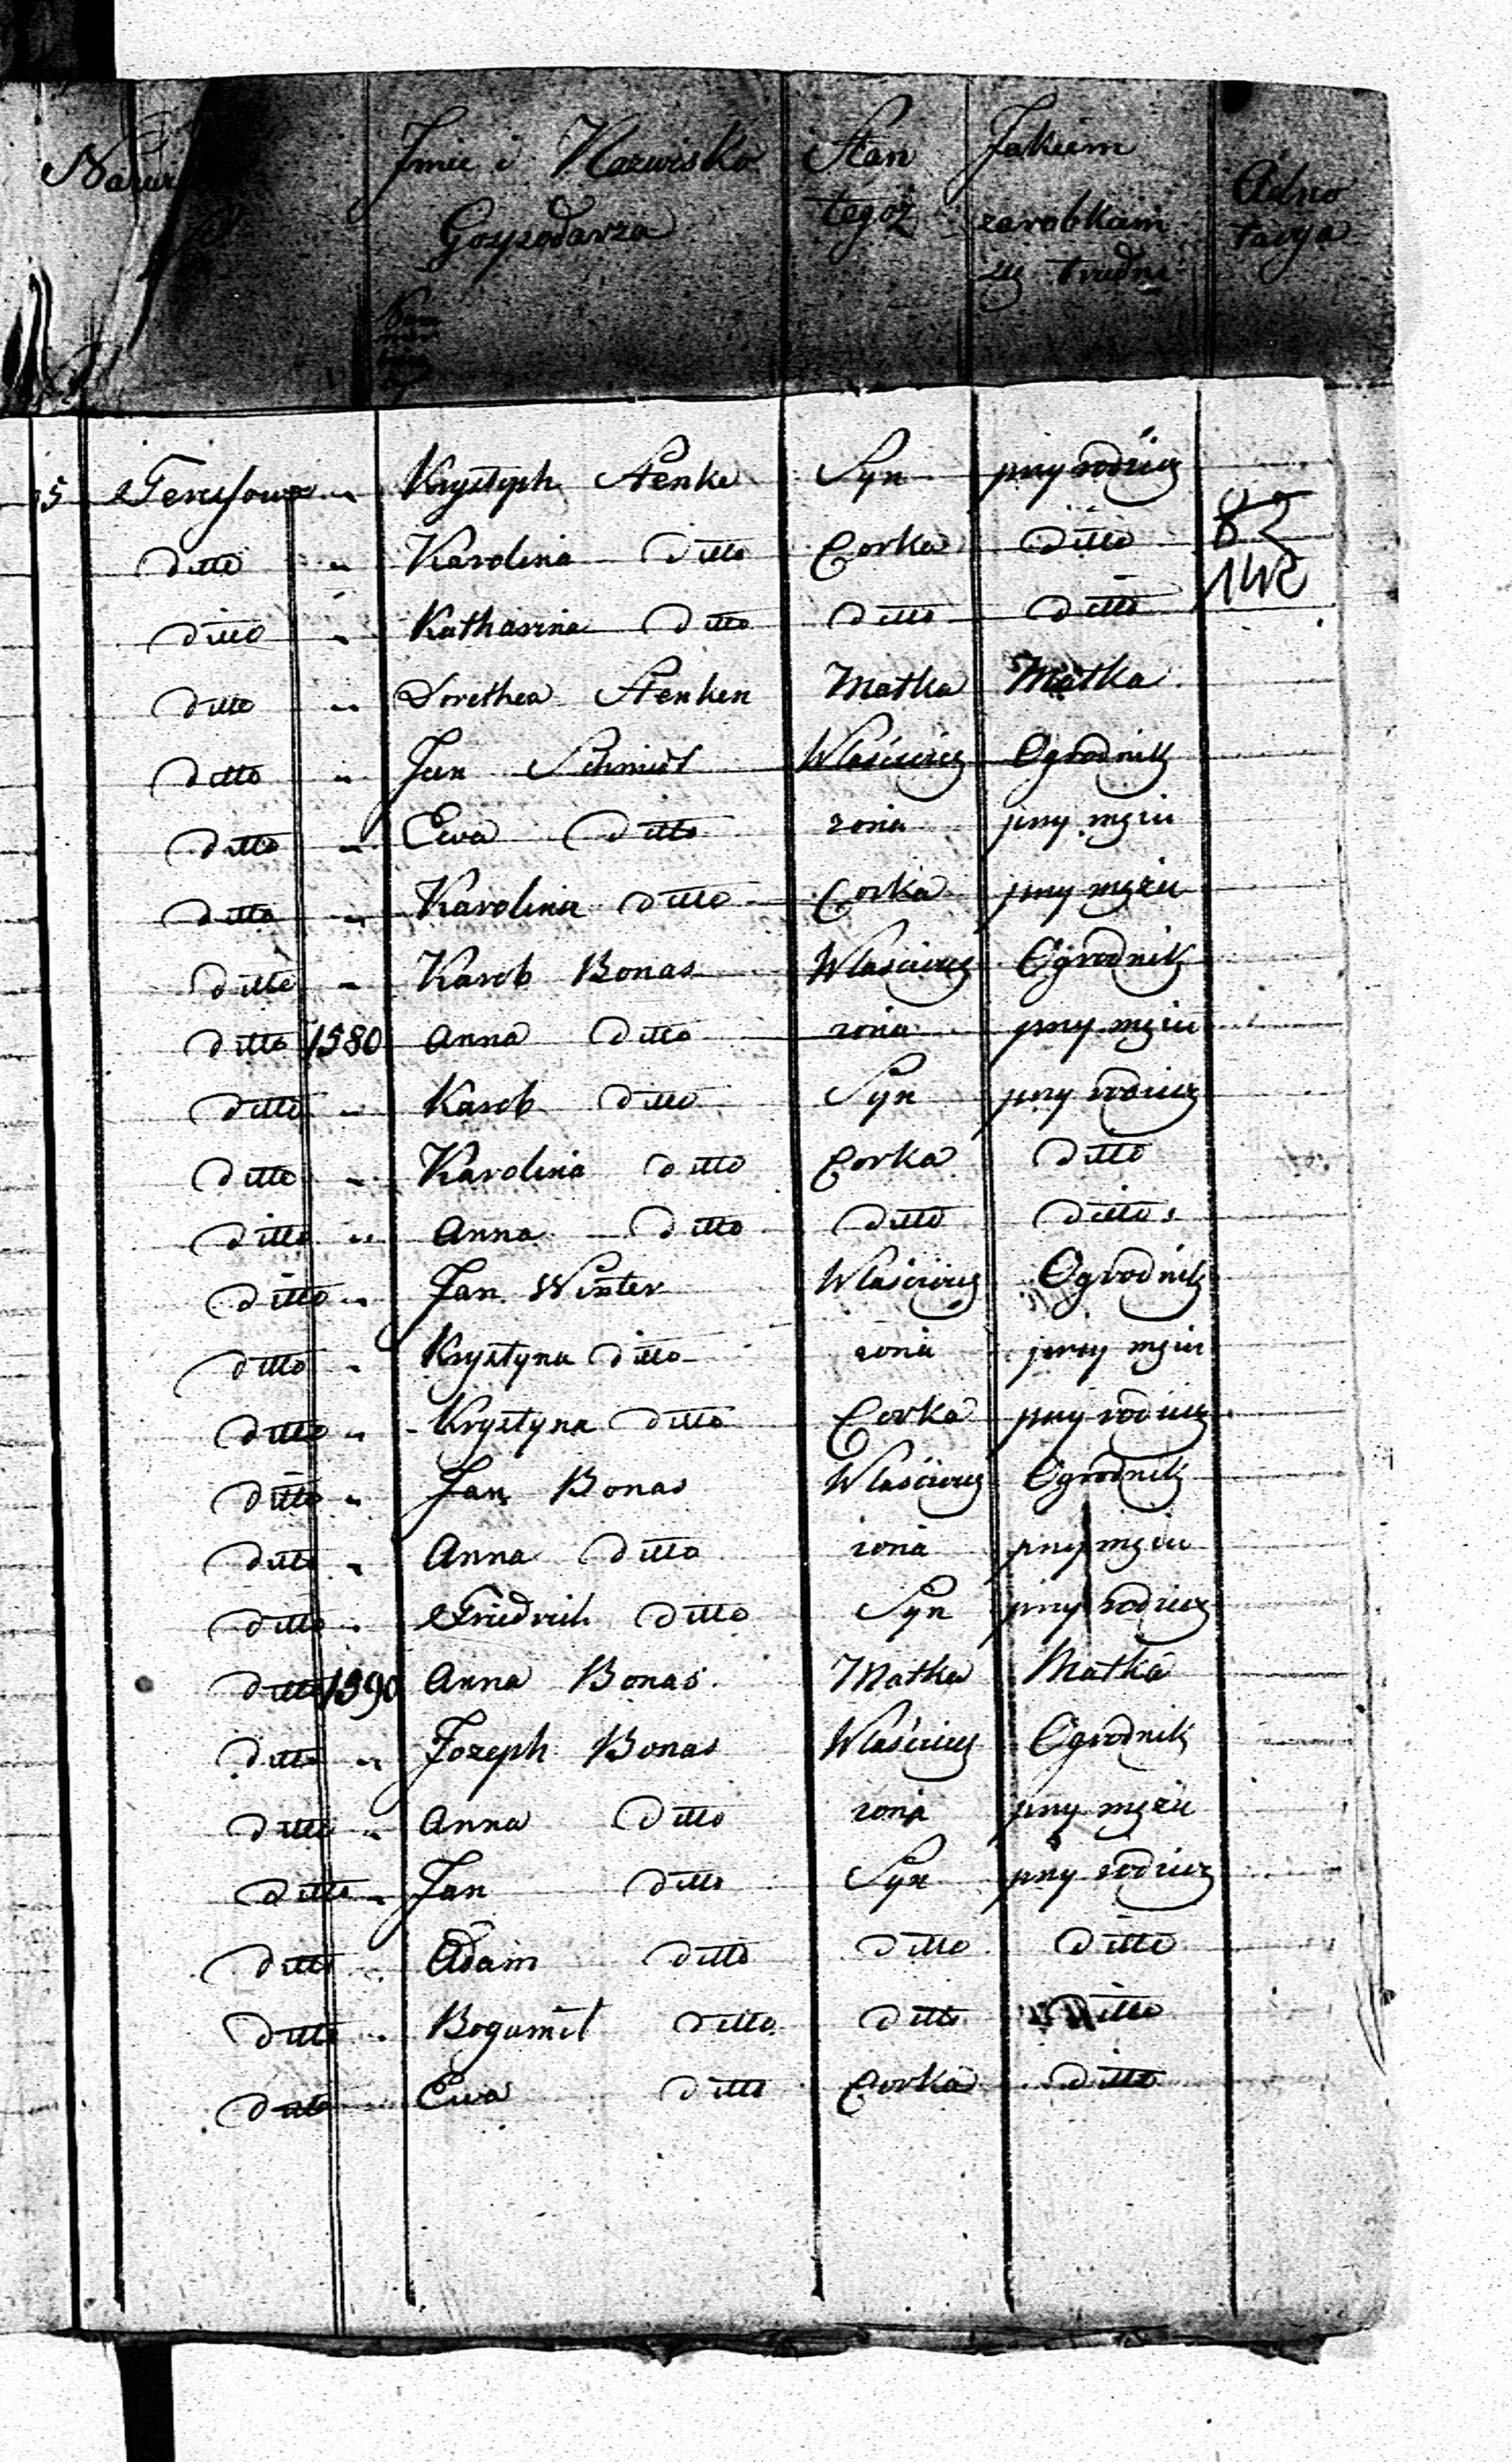 Imie i Nazwisko Gospodarza Stan tegoż Jakiem zarobkam się trudni Adnotacya
5 Teresow " Krysztoph Stenke Syn przy rodzicz
ditto " Karolina ditto Corka ditto 82
ditto " Katharina ditto ditto ditto 142
ditto " Dorethea Stenken Matka Matka
ditto " Jan Schmidt Właściciel Ogrodnik
ditto " Ewa ditto żona przy mężu
ditto " Karolina ditto Corka przy mężu
ditto " Karob Bonas Właściciel Ogrodnik
ditto 1380 Anna ditto żona przy mężu
ditto " Karob ditto Syn przy rodzicz
ditto " Karolina ditto Corka ditto
ditto " Anna ditto ditto ditto
ditto " Jan Winter Właściciel Ogrodnik
ditto " Krystyna ditto żona przy mężu
ditto " Krystyna ditto Corka przy rodzicz
ditto " Jan Bonas Właściciel Ogrodnik
ditto " Anna ditto żona przy mężu
ditto " Friedrich ditto Syn przy rodzicz
ditto 1390 Anna Bonas Matka Matka
ditto " Jozeph Bonas Właściciel Ogrodnik
ditto " Anna ditto żona przy mężu
ditto " Jan ditto Syn przy rodzicz
ditto " Adam ditto ditto ditto
ditto " Bogumił ditto ditto ditto
ditto " Ewa ditto Corka ditto